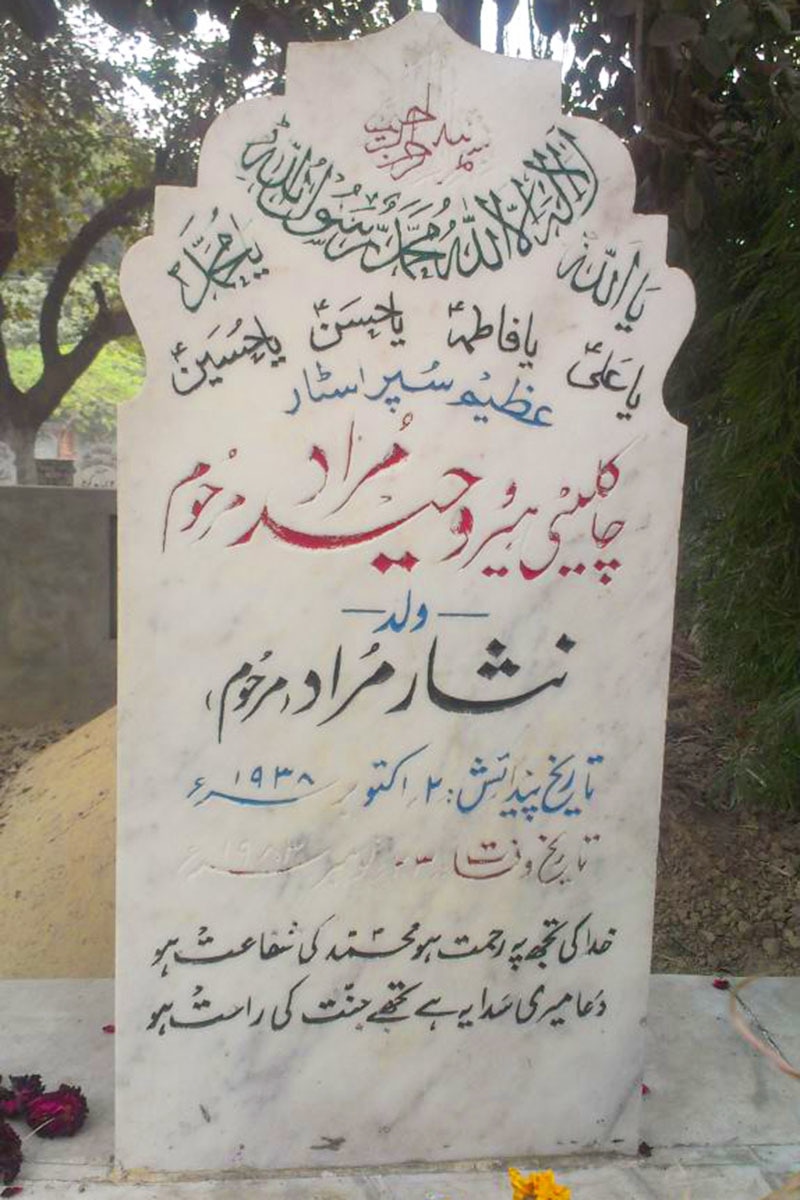 بسم اللہ الرحمن الرحیم
لا الہ الا اللہ محمد رسول اللہ
یا اللہ یا محمد
یا علیؑ یا فاطمہؑ یا حسنؑ یا حسینؑ
عظیم سُپر اسٹار
چاکلیٹی ہیرو وحید مُراد مرحُوم
ولد
نثار مُراد (مرحُوم)
تاریخ پیدائش: ۲ اکتوبر ۱۹۳۸ء
تاریخ وفات ۲۳ نومبر ۱۹۸۳ء
خدا کی تجھ پہ رحمت ہو محمدؐ کی شفاعت ہو
دعا میری سَدا یہ ہے تجھے جنّت کی راحت ہو